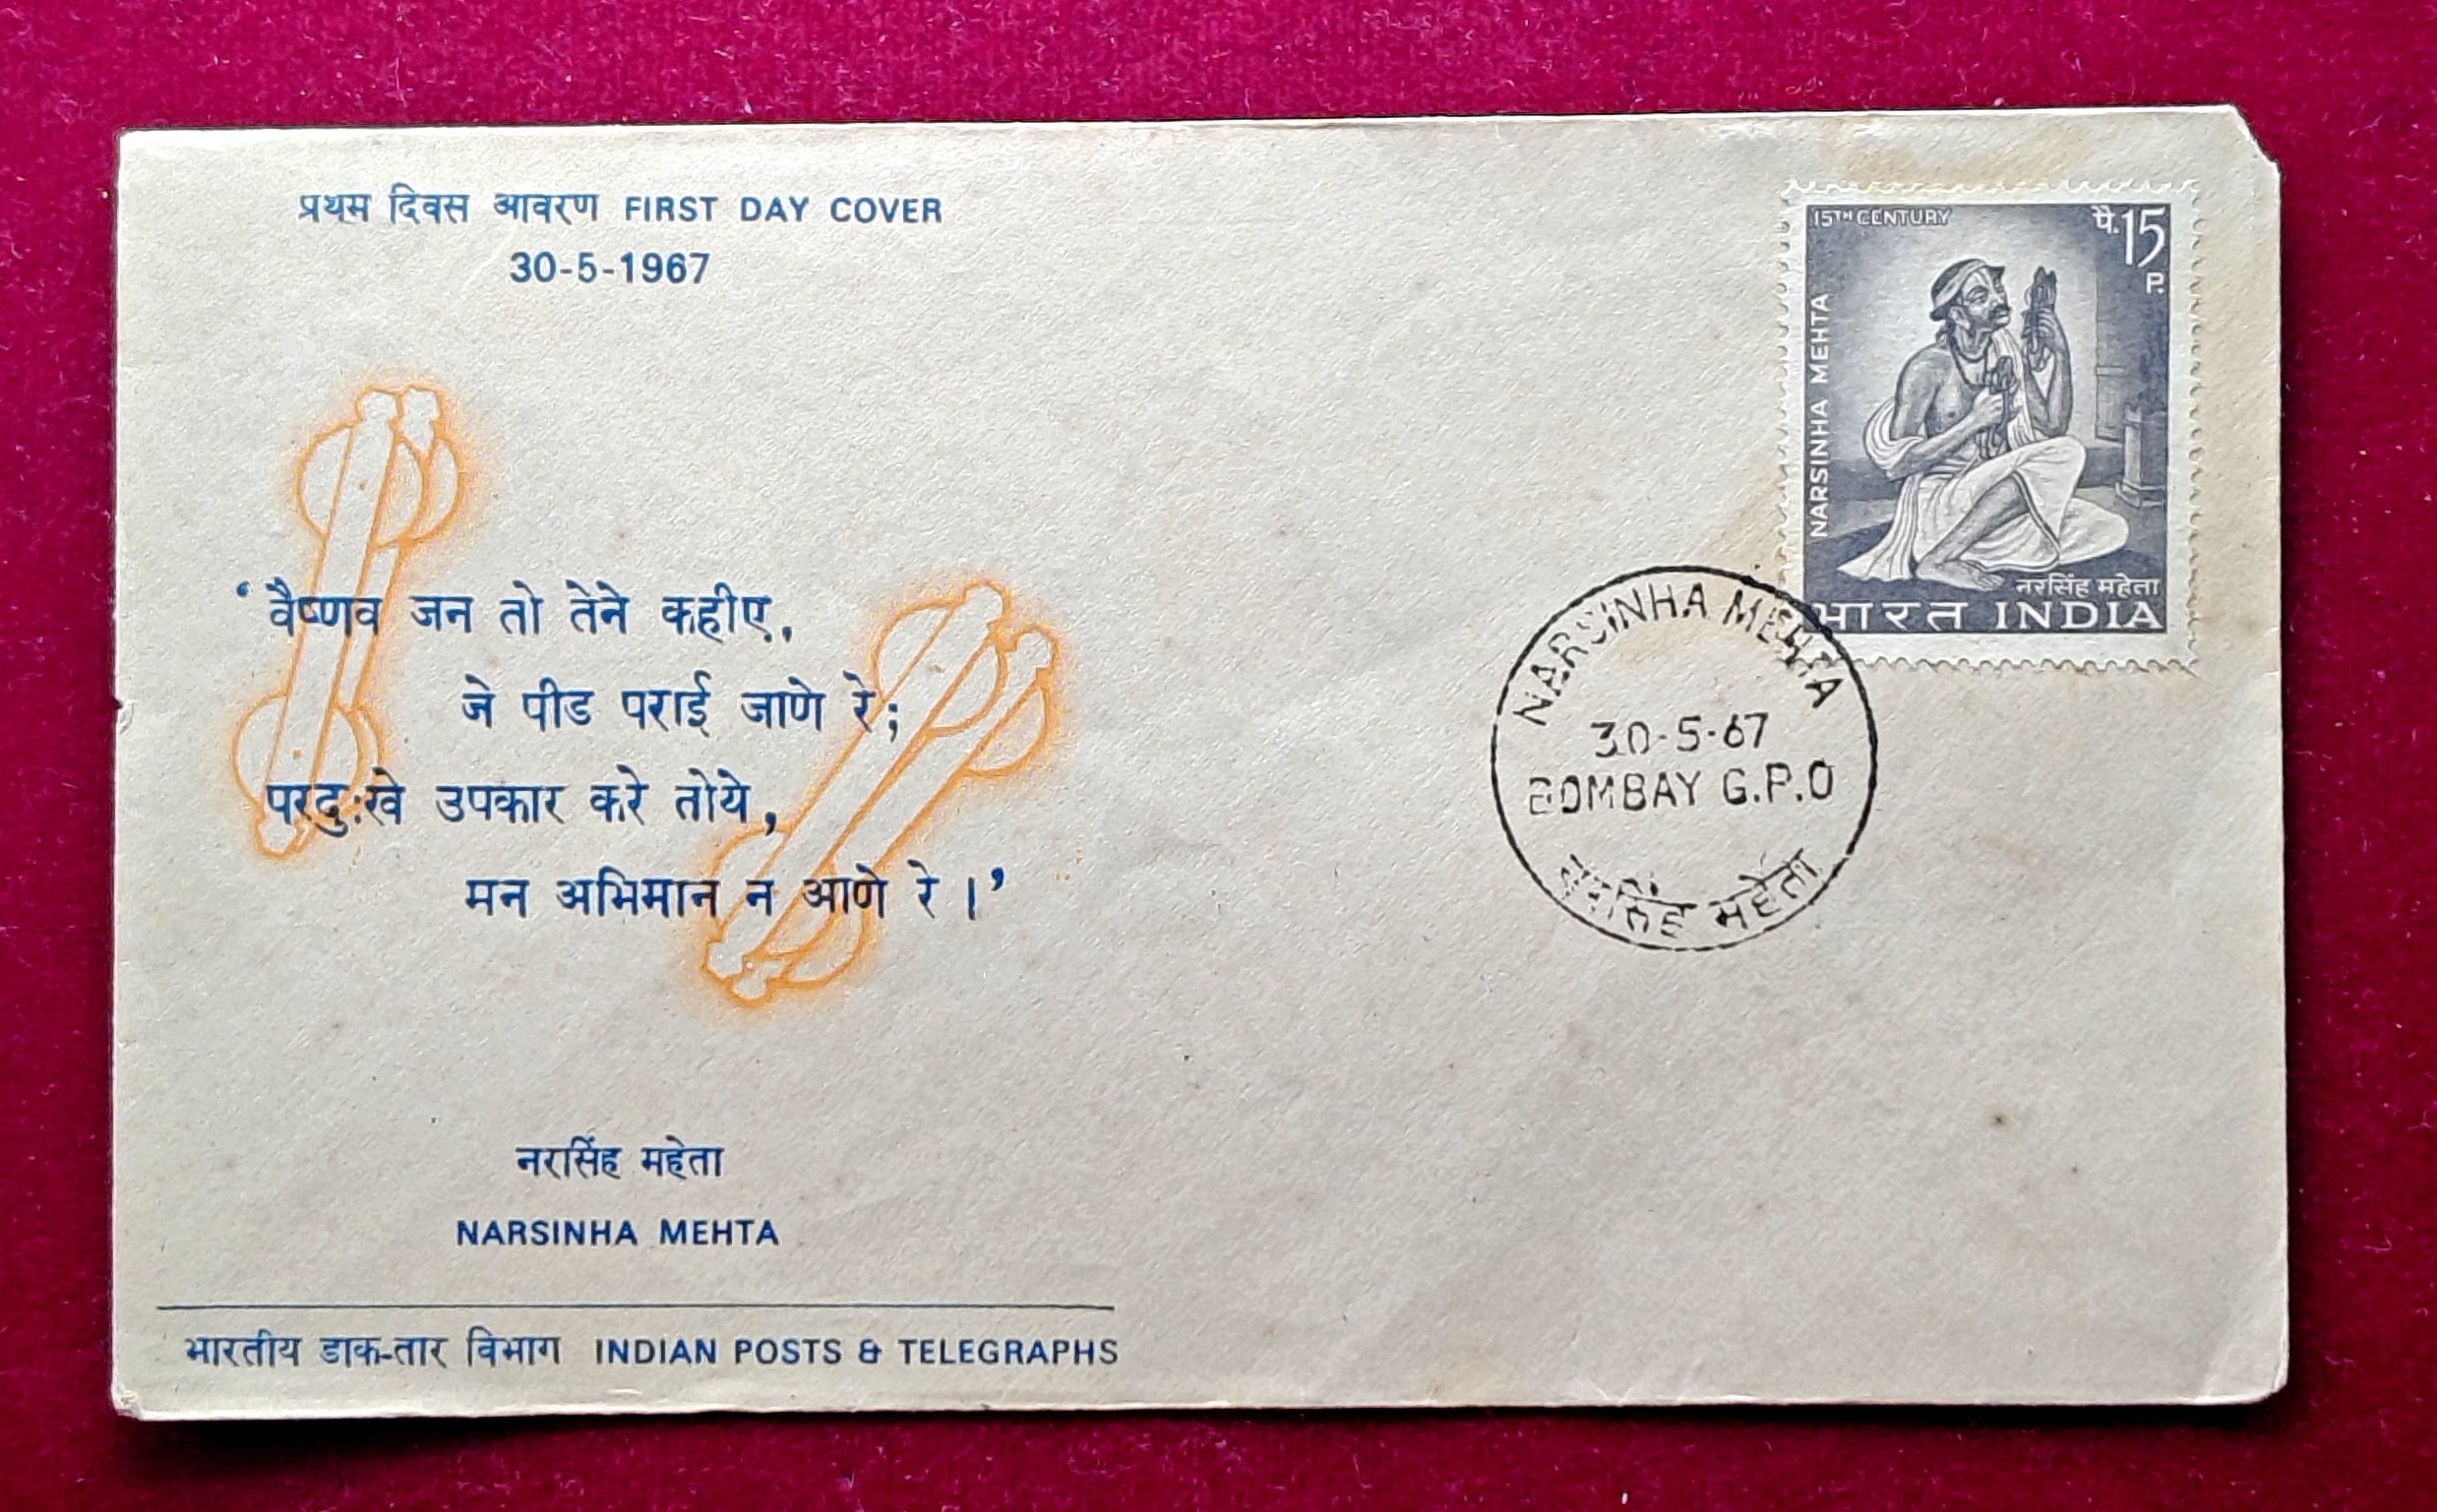 प्रथम दिवस आवरण FIRST DAY COVER
30-5-1967
15TH CENTURY
पै.15
P.
NARSINHA MEHTA
नरसिंह महेता
भारत INDIA
‘वैष्णव जन तो तेने कहीए,
जे पीड पराई जाणे रे;
परदुःखे उपकार करे तोये,
मन अभिमान न आणे रे ।’
NARSINHA MEHTA
30-5-67
BOMBAY G.P.O
नरसिंह महेता
नरसिंह महेता
NARSINHA MEHTA
भारतीय डाक-तार विभाग INDIAN POSTS & TELEGRAPHS